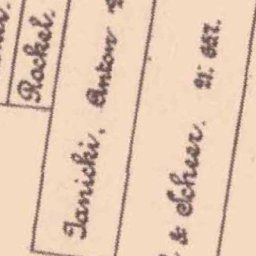 Rackel.
Janicki, Anton
& Scheer. 21. 657.